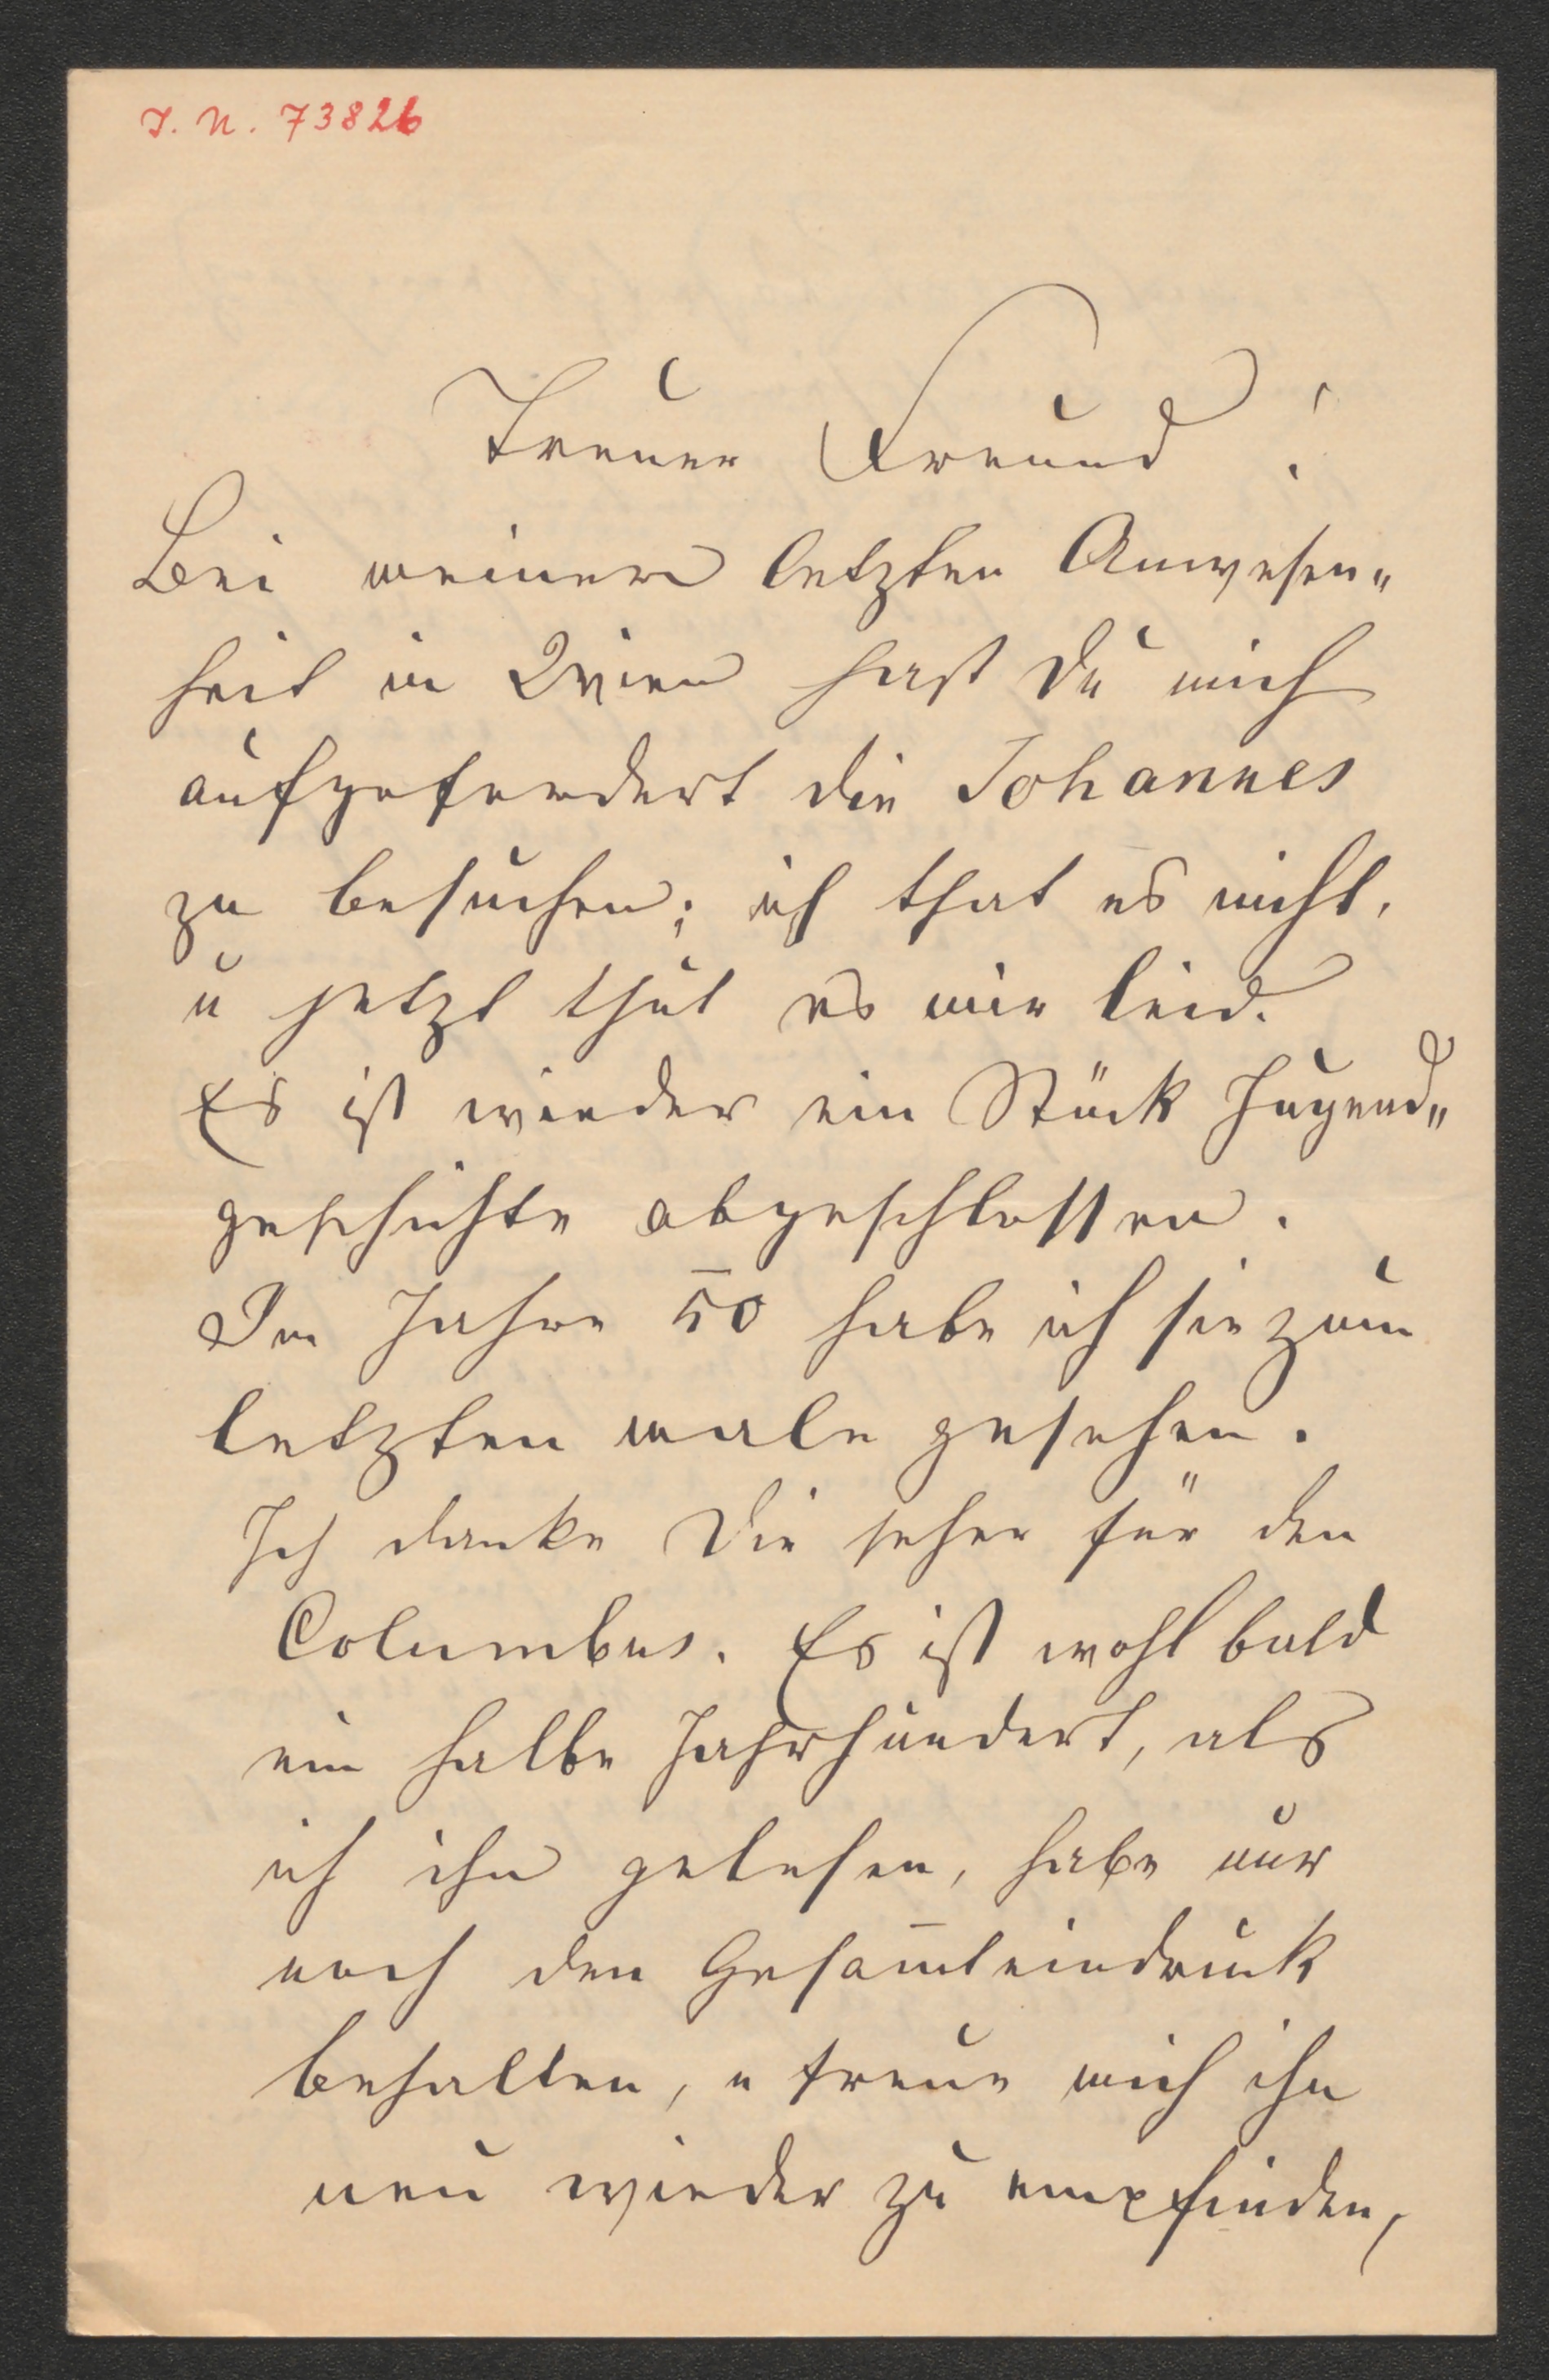 I. N. 73826
Treuer Freund!
Bei meiner letzten Anwesen„
heit in Wien hast Du mich
aufgefordert die Johannes
zu besuchen; ich that es nicht,
u jetzt thut es mir leid.
Es ist wieder ein Stück Jugend„
geschichte abgeschlossen.
Im Jahre 50 habe ich sie zum
letzten male gesehen.
Ich danke Dir sehr für den
Columbus. Es ist wohl bald
ein halbe Jahrhundert, als
ich ihn gelesen, habe nur
noch den Gesam̄teindruck
behalten, u freue mich ihn
neu wieder zu empfinden,